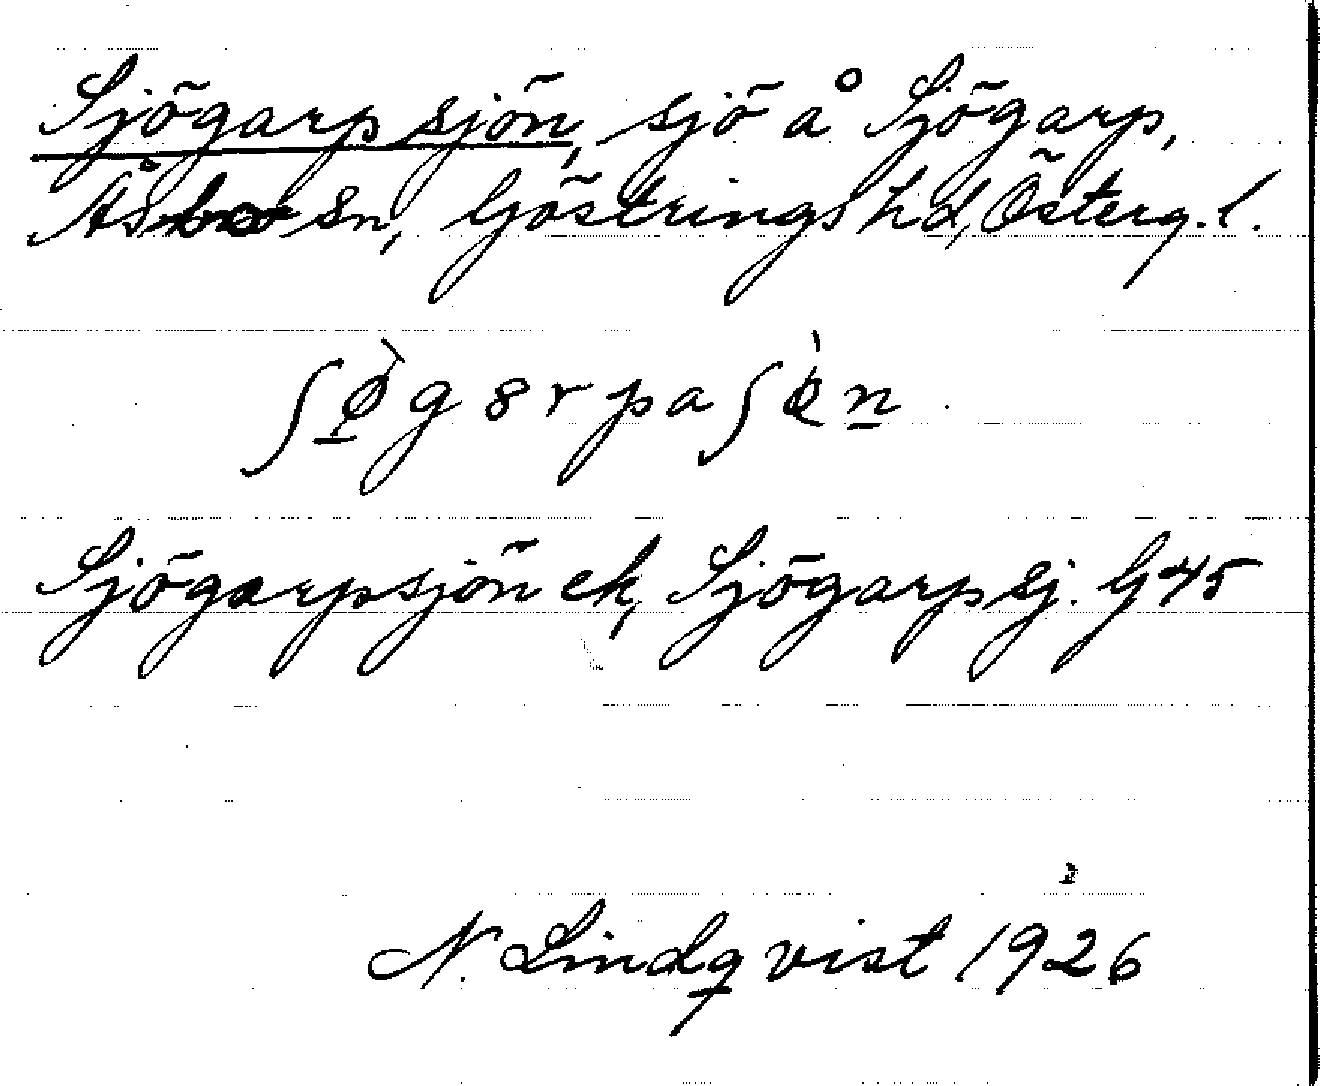 Sjögarpsjön, sjö å Sjögarp,
Åsbo sn, Göstrings hd, Österg. l.
ʃø̀gɜrpaʃø̀n
Sjögarpsjön ek, Sjögarpsj. G 45
N. Lindqvist 1926